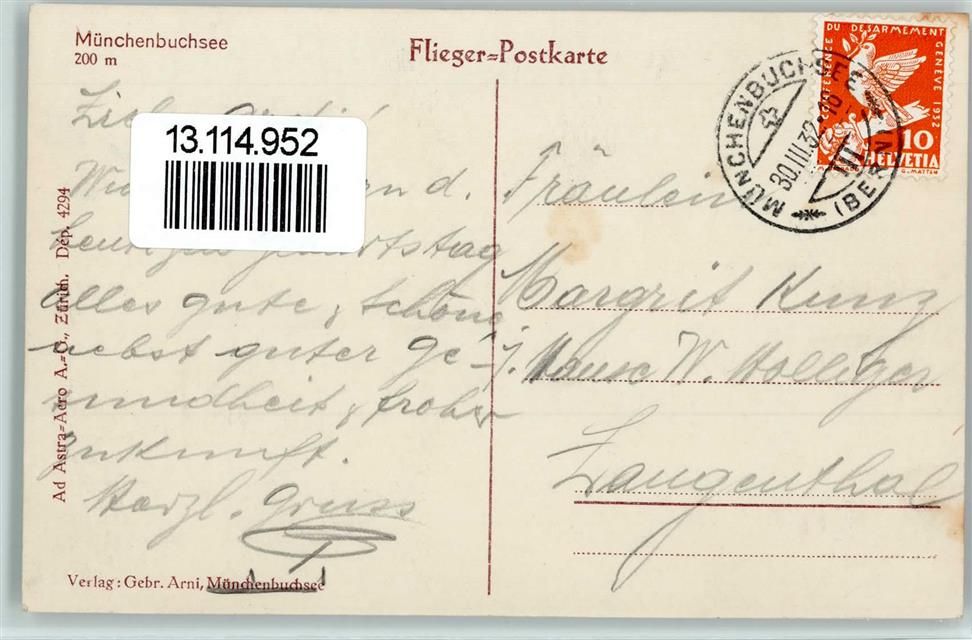 Münchenbuchsee
200 m
Flieger=Postkarte
CONFERENCE DU DESARMEMENT GENEVE 1932
10
HELVETIA
G. MATTEY
MÜNCHENBUCHSEE
30.III.32-18
(BERN)
13.114.952
Ad Astra=Aero A.=G., Zürich. Dép. 4294
d.
heutigen Geburtstag
alles gute, & schöne
nebst guter Ge-
sundheit, & froher
Zukunft.
Herzl. Gruss
Fräulein
Margrit Kunz
j. Hause W. Holliger
Langenthal
Verlag: Gebr. Arni, Münchenbuchsee